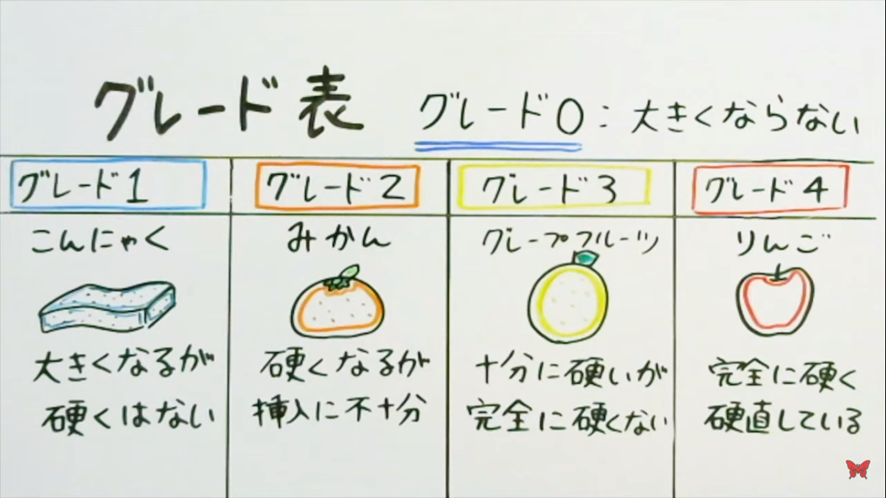 グレード表 グレード0：大きくならない
グレード1 グレード2 グレード3 グレード4
こんにゃく みかん グレープフルーツ りんご
大きくなるが 硬くなるが 十分に硬いが 完全に硬く
硬くはない 挿入に不十分 完全に硬くない 硬直している